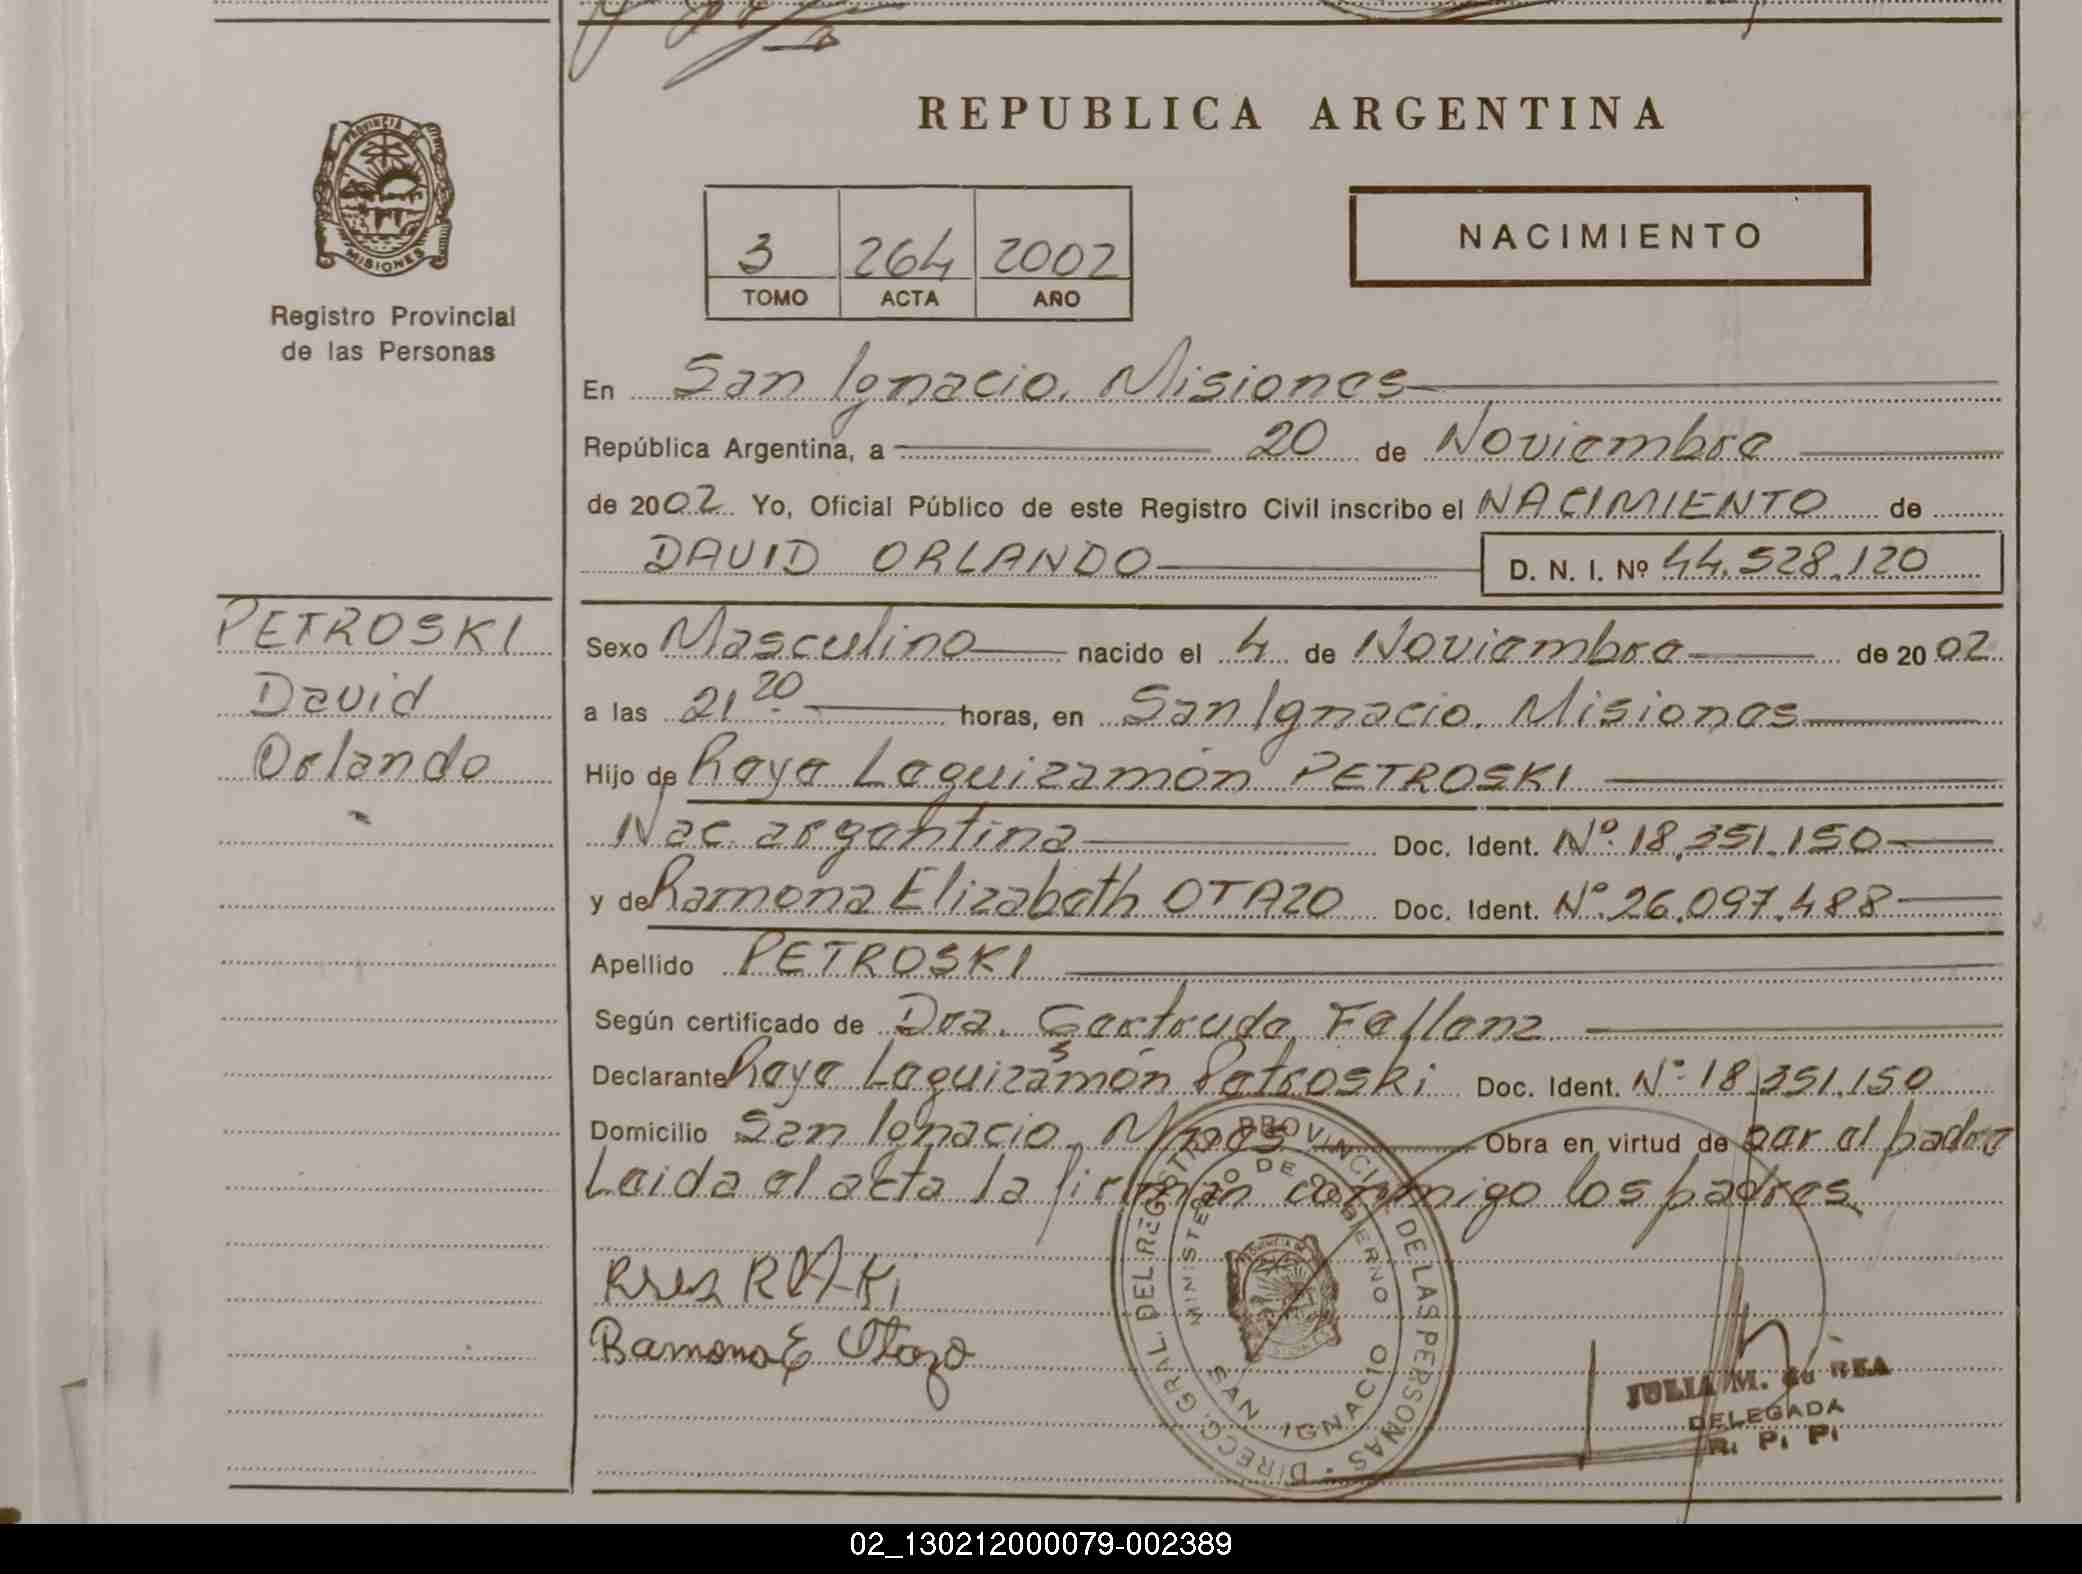 REPUBLICA ARGENTINA
PROVINCIA DE
MISIONES
Registro Provincial
de las Personas
3 264 2002
TOMO ACTA AÑO
NACIMIENTO
En San Ignacio. Misiones
República Argentina, a 20 de Noviembre
de 2002 Yo, Oficial Público de este Registro Civil inscribo el NACIMIENTO de
DAVID ORLANDO D. N. I. Nº 44.528.120
PETROSKI
David
Orlando
Sexo Masculino nacido el 4 de Noviembre de 2002
a las 21 20 horas, en San Ignacio. Misiones
Hijo de Reye Leguizamón PETROSKI
Nac. argentina Doc. Ident. Nº 18.351.150
y de Ramona Elizabeth OTAZO Doc. Ident. Nº 26.097.488
Apellido PETROSKI
Según certificado de Dra. Gertrude Fellenz
Declarante Reye Leguizamón Petroski Doc. Ident. Nº 18.351.150
Domicilio San Ignacio. Mnes Obra en virtud de ser el padre
Leida el acta la firman conmigo los padres
Ramona E Otazo
DIRECC. GRAL. DEL REGISTRO PROVINCIAL DE LAS PERSONAS
MINISTERIO DE GOBIERNO
SAN IGNACIO
JULIA M. de REA
DELEGADA
R. P. P.
02_130212000079-002389